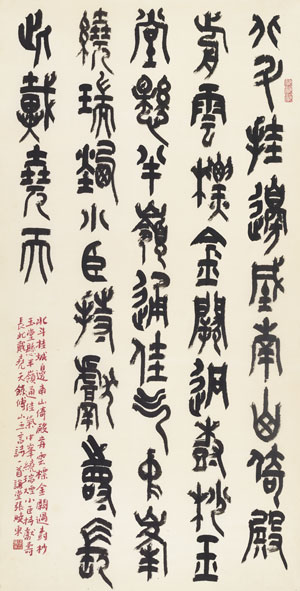 北斗挂邊城南山倚殿
前雲標金闕迥樹杪玉
堂懸半嶺通佳氣中峯
繞瑞煙小臣持獻壽長
此戴堯天
北斗挂城邊南山倚殿前雲標金闕迥樹杪
玉堂懸半嶺通佳氣中峯繞瑞煙小臣持獻壽
長此戴堯天錄傅山五言詩一首